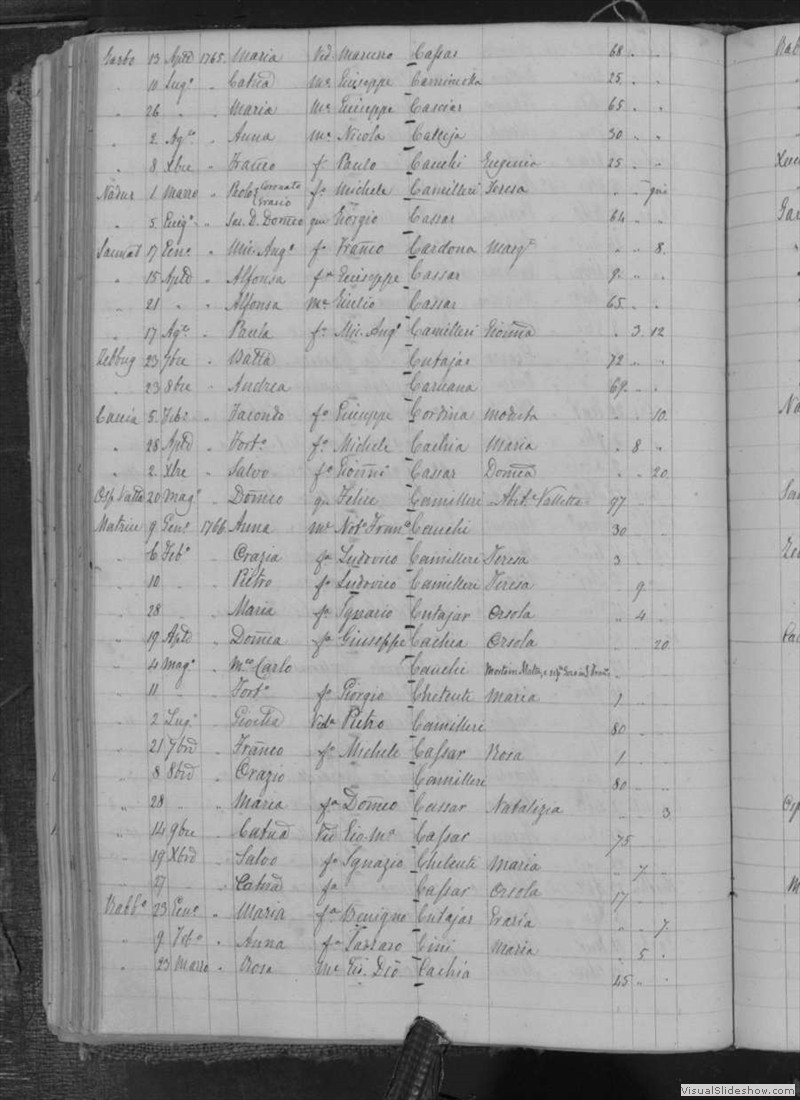 Garbo 13 Aple 1765 Maria Vid Marcello Cassar 68
" 10 Lugo " Catna me Giuseppe Camminetta 25
" 26 " " Maria Me Giuseppe Casciar 65
" 2 Ago " Anna me Nicola Calleja 30
" 8 Xbre " Franco fo Paulo Cauchi Eugenia 25
Nadur 1 Marzo " Coronato fo Michele Camilleri Teresa
" 5 " Sac. D. Domco qm Giorgio Cassar 64
Sannat 17 Geno " Mic. Ango fo Franco Cardona 8
" 15 Aple " Alfonsa fa Giuseppe Cassar 9
" 21 " " Alfonsa me Giulio Cassar 65
" 17 Ago " Paula fa Mic. Ango Camilleri Gioana 3 12
Zebbug 23 7bre " Batta Cutajar 72
" 23 8bre " Andrea Caruana 69
Caccia 5 Febo " Facondo fo Giuseppe Cordina Modesta 10
" 28 Aple " Forto fo Michele Cachia Maria 8
" 2 Xbre " Salvo fo Gionni Cassar Domca 20
20 Mago " Domco qm Felice Camilleri Valletta 97
Matrice 9 Geno 1766 Anna me Noto Franco Cauchi 30
" 6 Febo Grazia fa Ludovico Camilleri Teresa 3
" 10 " Pietro fo Ludovico Camilleri Teresa 9
" 28 " Maria fa Ignazio Cutajar Orsola 4
" 19 Aple Domca fa Giuseppe Cachia Orsola 20
" 4 Mago Carlo Cauchi
" 11 " Forto fo Giorgio Chetcuti Maria 1
" 2 Lugo Vida Pietro Camilleri 80
" 21 7bre " Franco fo Michele Cassar Rosa 1
" 8 8bre " Orazio Camilleri 80
" 28 " Maria fa Domco Cassar Natalizia 3
" 14 9bre " Catna Cassar 75
" 19 Xbre " Salvo fo Ignazio Chetcuti Maria 7
" 27 " Catna fa Cassar Orsola 17
Rabbo 23 Geno " Maria fa Benigno Cutajar Grazia 7
" 9 Febo " Anna fa Lazzaro Cini Maria 5
" 23 Marzo " Rosa me Gio. Cachia 45
VisualSlideshow.com